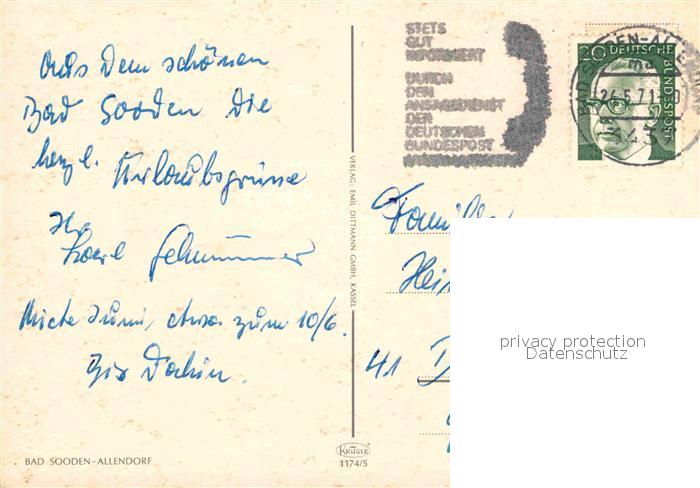 Aus dem schönen
Bad Sooden die
herzl. Urlaubsgrüsse
Ihr
Karl
Mitte Juni, etwas zum 10/6.
Bis Dahin.
BAD SOODEN-ALLENDORF
VERLAG: EMIL DITTMANN GMBH, KASSEL
KRÜGER
1174/5
STETS
GUT
INFORMIERT
DURCH
DEN
ANSAGEDIENST
DER
DEUTSCHEN
BUNDESPOST
BAD SOODEN-ALLENDORF
24.5.71
DEUTSCHE
BUNDESPOST
Familie
41
privacy protection
Datenschutz